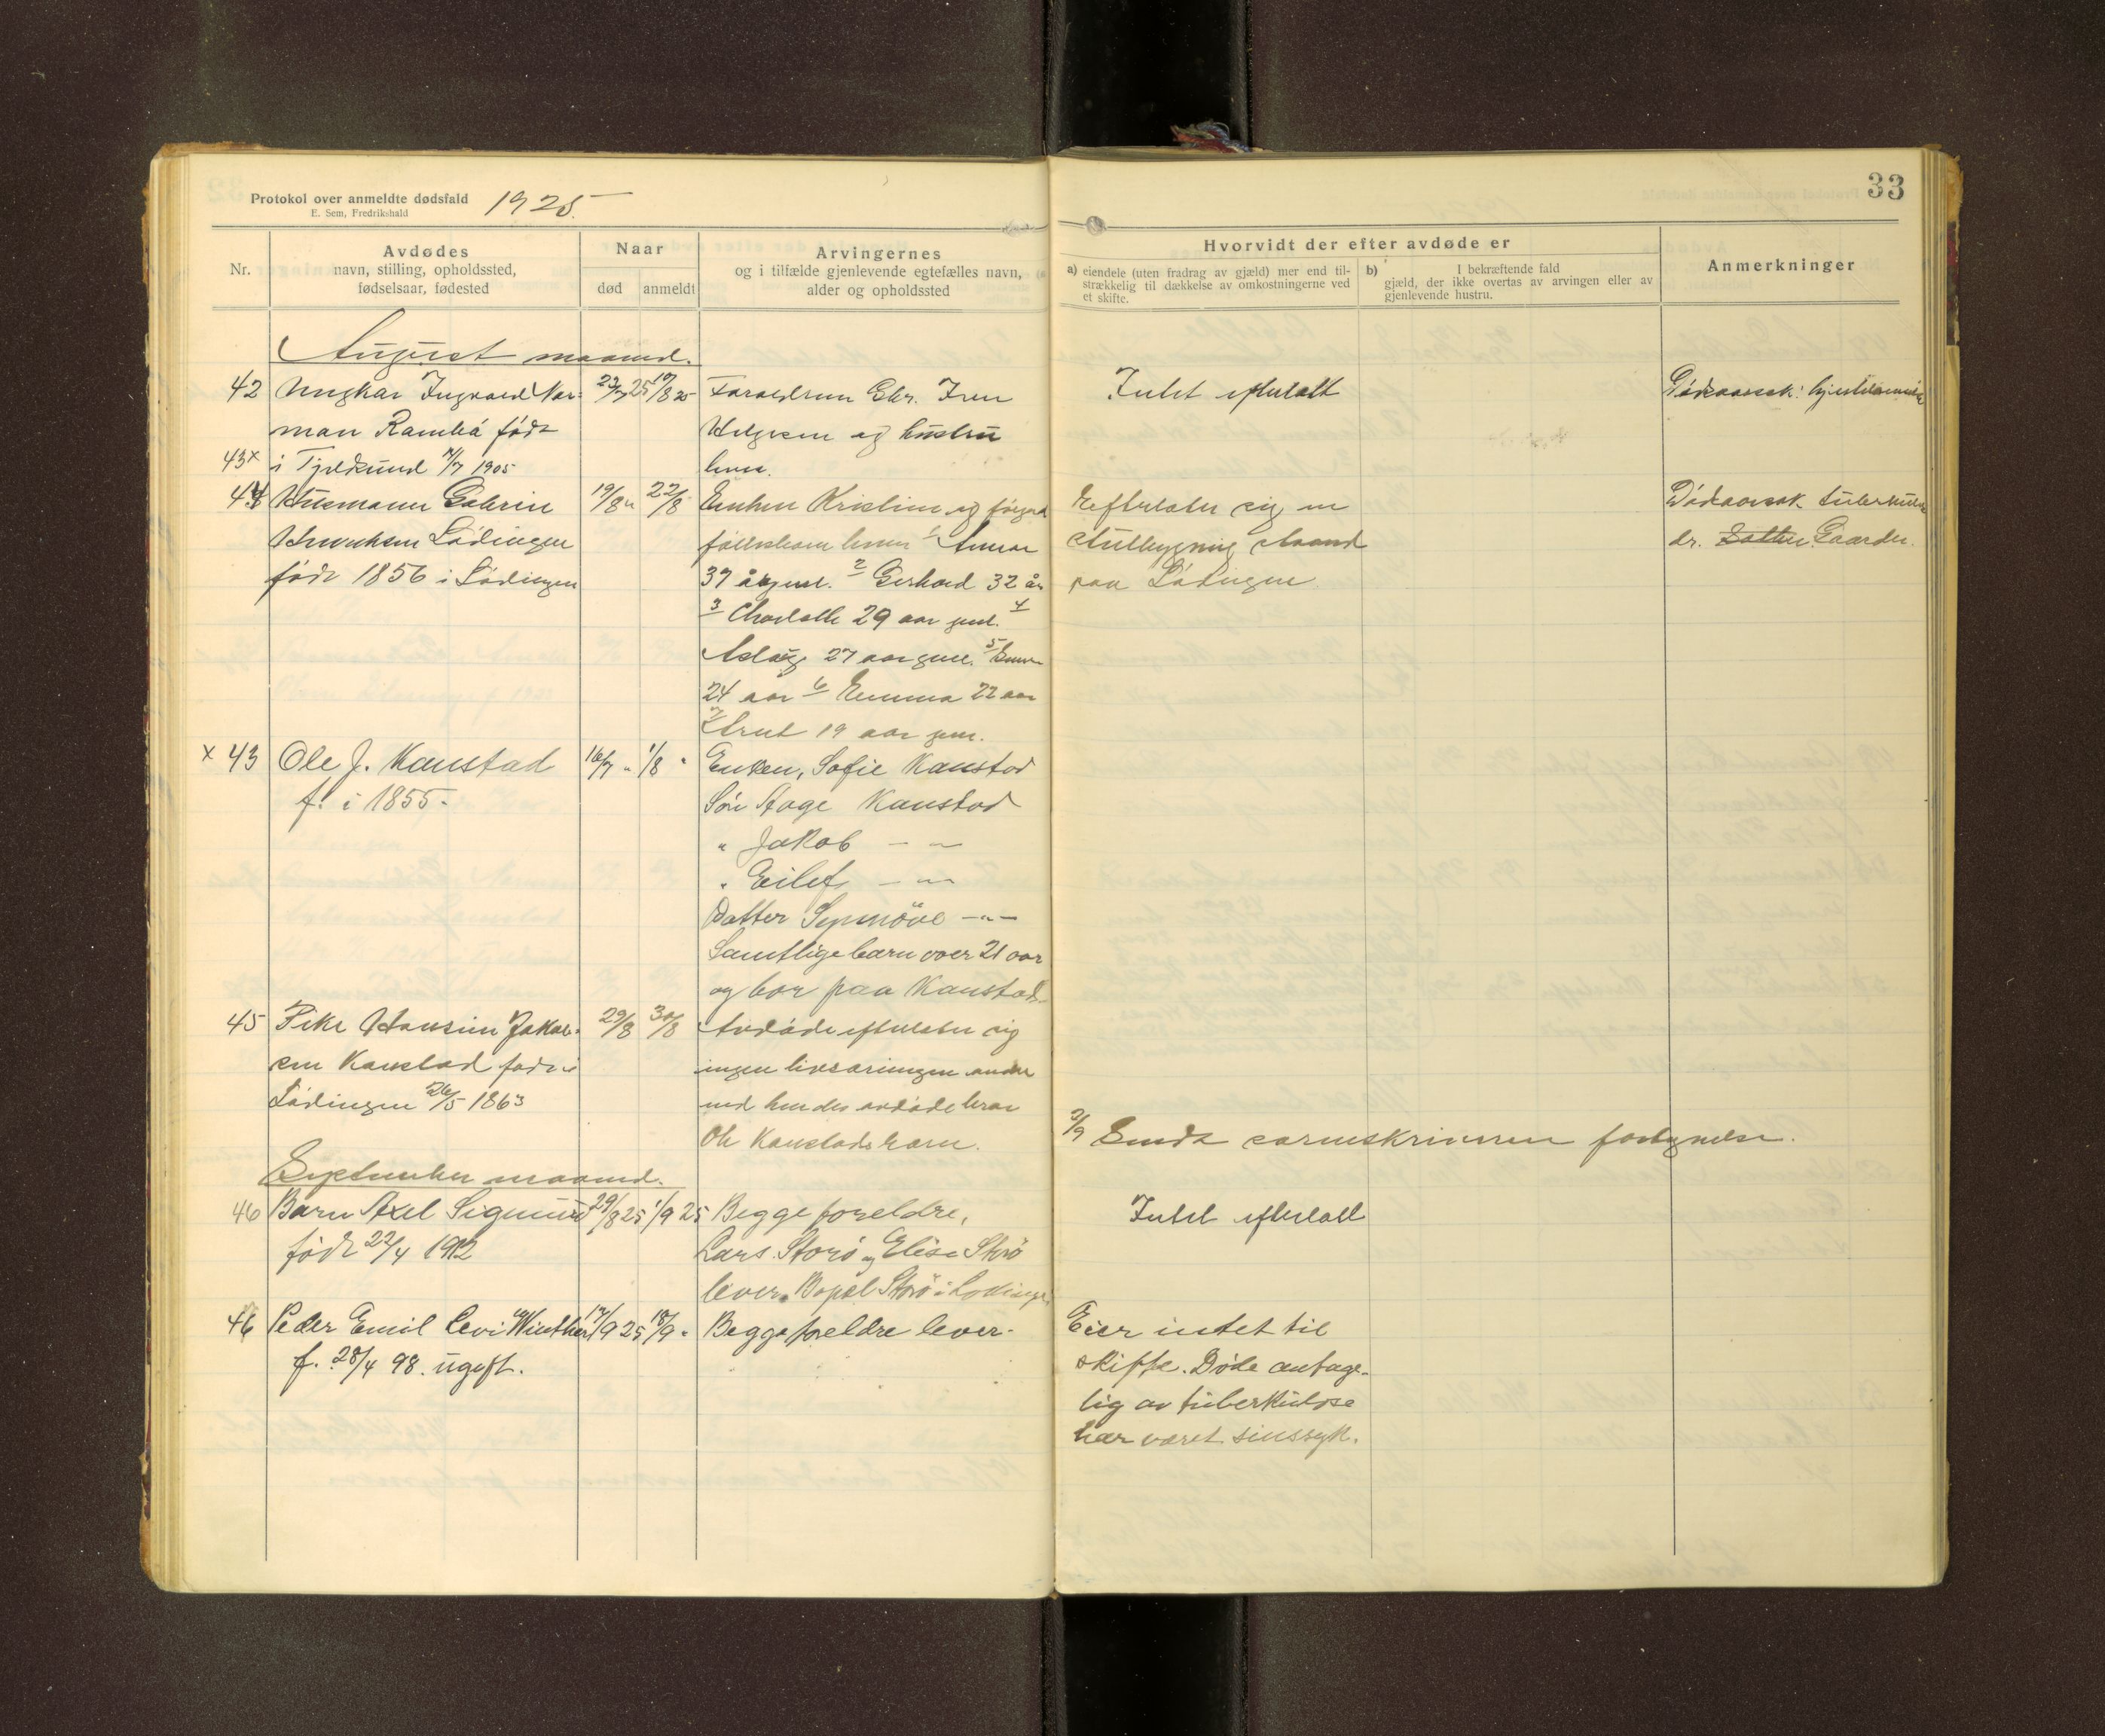 33
Protokol over anmeldte dødsfald 1925.
E. Sem, Fredrikshald
Nr.
Avdødes
navn, stilling, opholdssted,
fødselsaar, fødested
Naar
død anmeldt
Arvingernes
og i tilfælde gjenlevende egtefælles navn,
alder og opholdssted
Hvorvidt der efter avdøde er
a) eiendele (uten fradrag av gjæld) mer end til-
strækkelig til dækkelse av omkostningerne ved
et skifte.
b) I bekræftende fald
gjæld, der ikke overtas av arvingen eller av
gjenlevende hustru.
Anmerkninger
August maaned.
42 Ungkar Ingvard Nor-
man Rambå født
43x i Tjeldsund 7/7 1905
23/7 25 17/8 25
Foreldrene Chr.
Helgesen og hustru
lever.
Intet efterlatt
Dødsaarsak:
44 Husmann
Henriksen Lødingen
født 1856 i Lødingen
19/8 " 22/8
Enken Kristine og følgende
fællesbarn lever 1
37 år gml. 2 Gerhard 32 år
3 Charlotte 29 aar gml. 4
Aslaug 27 aar gml. 5
24 aar 6 Emma 22 aar
7 19 aar gml.
Efterlater sig en
Stubygning
paa Lødingen
Dødsaarsak tuberkulose
dr. Gaarder.
x 43 Ole J. Kanstad
f. i 1855.
16/7 " 1/8 "
Enken, Sofie Kanstad
Søn Aage Kanstad
" Jakob — " —
" Eilef — " —
Datter Synnöve — " —
Samtlige barn over 21 aar
og bor paa Kanstad.
45 Pike Hansine Jakob-
sen Kanstad født i
Lødingen 26/5 1863
29/8 30/8
Avdøde efterlater sig
ingen livsarvinger andre
end hendes avdøde bror
Ole Kanstads barn.
2/9 Sendt sorenskriveren
September maaned.
46 Barn Axel Sigmund
født 22/4 1912
29/8 25 1/9 25
Begge foreldre,
Lars Storö og Elise Storö
lever. Bopæl Storö i Lødingen
Intet efterlatt
46 Peder Emil Levi Winther
f. 28/4 98. ugift.
17/9 25 18/9 "
Begge foreldre lever.
Eier intet til
skifte. Døde antage-
lig av tuberkulose
har været sinssyk.